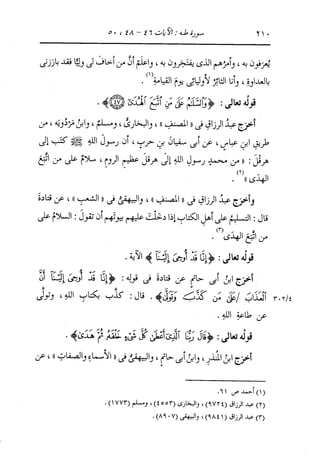 ٢١٠ سورة طه : الآيات ٤٦ - ٤٨ ، ٥٠
يُعرَفون به ، وأمرُهم الذى يفتخِرون به ، واعلَمْ أنَّ من أخاف لى وليًّا فقد بارَزنى
بالعداوةِ ، وأنا الثائرُ لأوليائى يومَ القيامةِ(١) .
قولُه تعالى : ﴿وَٱلسَّلَٰمُ عَلَىٰ مَنِ ٱتَّبَعَ ٱلْهُدَىٰٓ ٤٧﴾ .
أخرَج عبدُ الرزاقِ فى « المصنفِ » ، والبخارىُّ ، ومسلمٌ ، وابنُ مَرْدُويَه ، من
طريقِ ابنِ عباسٍ ، عن أبى سفيانَ بنِ حربٍ ، أن رسولَ اللهِ ﷺ كتَب إلى
هِرَقلَ : « من محمدٍ رسولِ اللهِ إلى هرقلَ عظيمِ الرومِ ، سلامٌ على من اتَّبَع
الهدى »(٢) .
وأخرَج عبدُ الرزاقِ فى « المصنفِ » ، والبيهقىُّ فى « الشعبِ » ، عن قتادةَ
قال : التسليمُ على أهلِ الكتابِ إذا دخَلْتَ عليهم بيوتَهم أن تقولَ : السلامُ على
من اتَّبَع الهدى(٣) .
قولُه تعالى : ﴿إِنَّا قَدْ أُوحِىَ إِلَيْنَآ﴾ الآية .
أخرَج ابنُ أبى حاتمٍ عن قتادةَ فى قولِه : ﴿إِنَّا قَدْ أُوحِىَ إِلَيْنَآ أَنَّ
٣٠٢/٤ ٱلْعَذَابَ /عَلَىٰ مَن كَذَّبَ وَتَوَلَّىٰ﴾ . قال : كذَّب بكتابِ اللهِ ، وتولَّى
عن طاعةِ اللهِ .
قولُه تعالى : ﴿قَالَ رَبُّنَا ٱلَّذِىٓ أَعْطَىٰ كُلَّ شَىْءٍ خَلْقَهُۥ ثُمَّ هَدَىٰ﴾ .
أخرَج ابنُ المنذرِ ، وابنُ أبى حاتمٍ ، والبيهقىُّ فى « الأسماءِ والصفاتِ » ، عن
(١) أحمد ص ٦١.
(٢) عبد الرزاق (٩٧٢٤) ، والبخارى (٤٥٥٣) ، ومسلم (١٧٧٣) .
(٣) عبد الرزاق (٩٨٤١) ، والبيهقى (٨٩٠٧) .